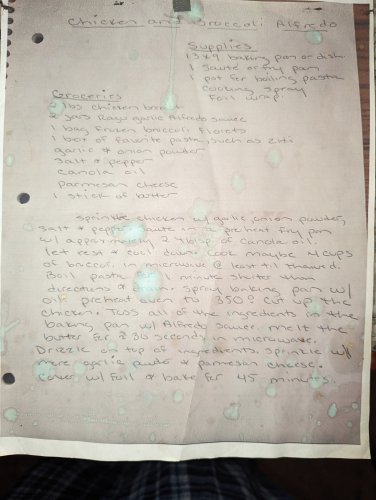 Chicken and Broccoli Alfredo
Supplies
13x9 baking pan or dish
1 saute or fry pan
1 pot for boiling pasta
cooking spray
foil wrap
Groceries
2 lbs chicken breast
2 jars Ragu garlic Alfredo sauce
1 bag frozen broccoli florets
1 box of favorite pasta, such as ziti
garlic & onion powder
salt & pepper
canola oil
parmesan cheese
1 stick of butter
sprinkle chicken w/ garlic, onion powder,
salt & pepper. Saute in a preheat fry pan
w/ approximately 2 tbsp. of canola oil.
let rest & cool down. cook maybe 4 cups
of broccoli in microwave @ least til thawed.
Boil pasta 1 minute shorter than
directions & drain. Spray baking pan w/
oil. preheat oven to 350°. cut up the
chicken. Toss all of the ingredients in the
baking pan w/ Alfredo sauce. melt the
butter for 30 seconds in microwave.
Drizzle on top of ingredients. Sprinkle w/
more garlic powder & parmesan cheese.
Cover w/ foil & bake for 45 minutes.